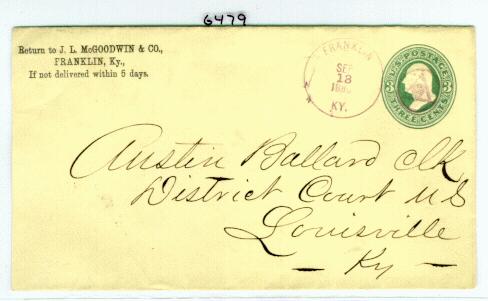 6479
Return to J. L. McGOODWIN & CO.,
FRANKLIN, Ky.,
If not delivered within 5 days.
FRANKLIN
SEP
13
KY.
U.S. POSTAGE
3 3
THREE CENTS
Austin Ballard Clk
District Court U S
Louisville
— Ky —